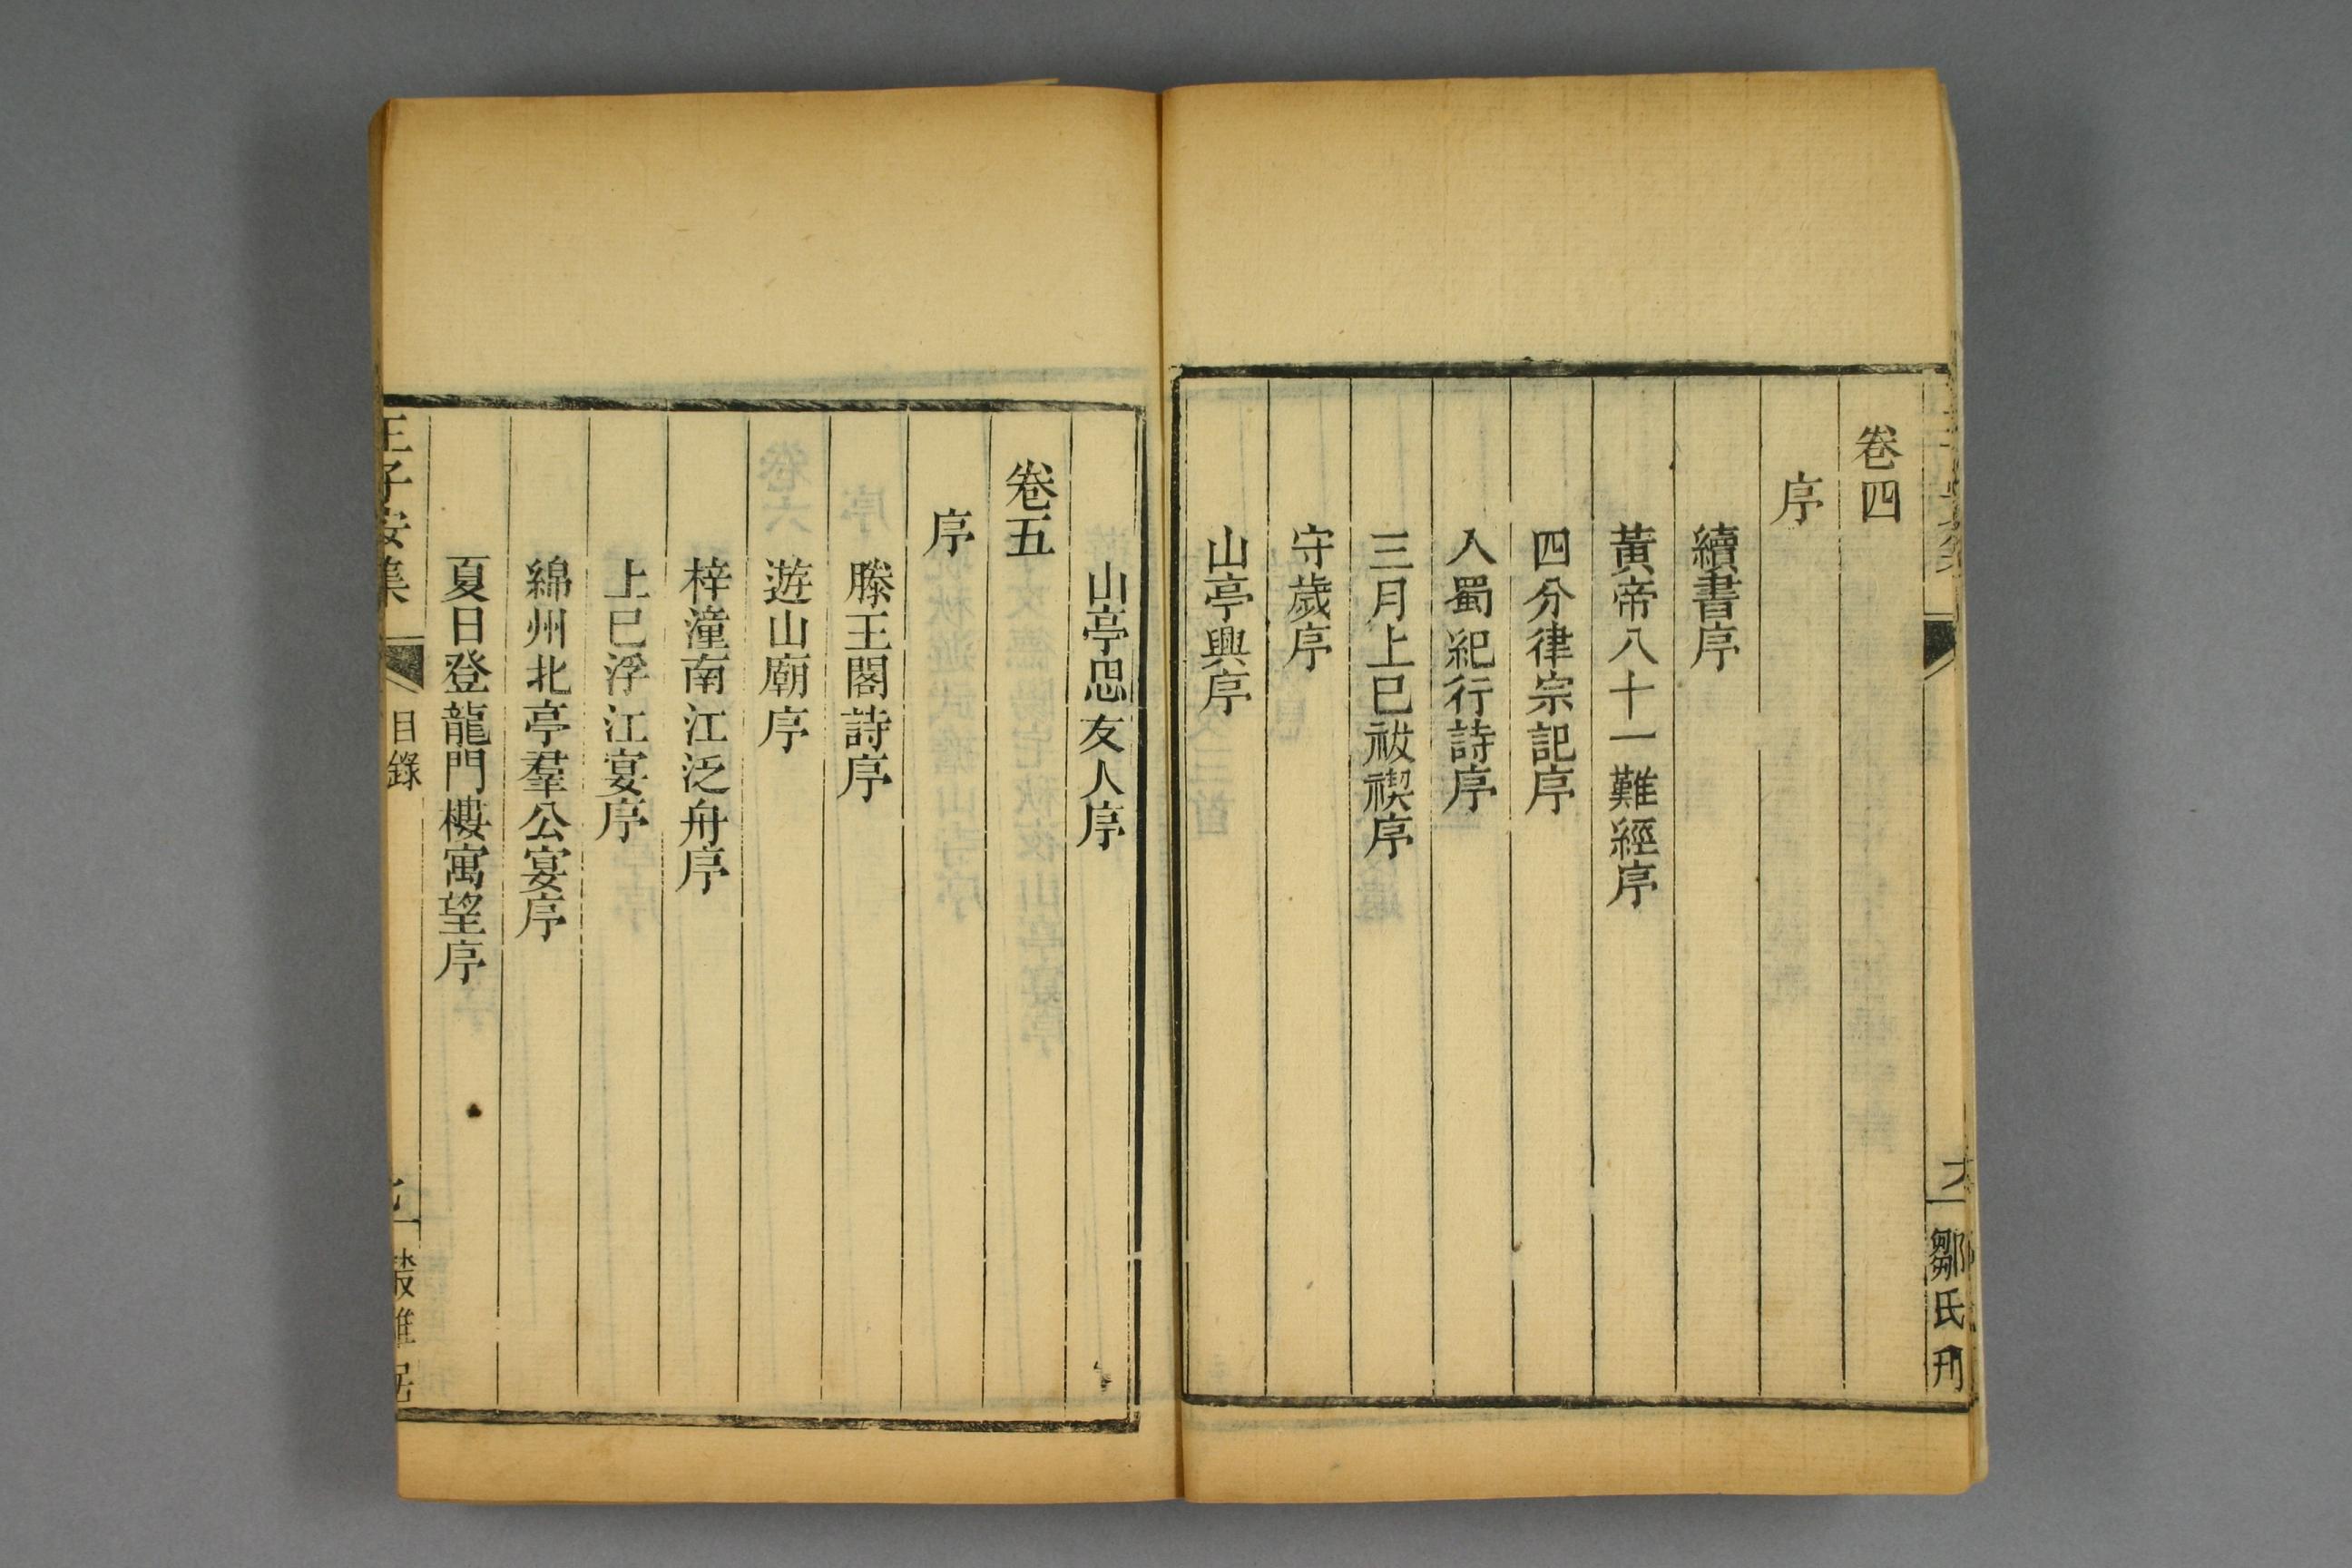 卷四
序
續書序
黃帝八十一難經序
四分律宗記序
入蜀紀行詩序
三月上巳祓禊序
守歲序
山亭興序
鄒氏刊
山亭思友人序
卷五
序
滕王閣詩序
遊山廟序
梓潼南江泛舟序
上巳浮江宴序
綿州北亭羣公宴序
夏日登龍門樓寓望序
王子安集
目錄